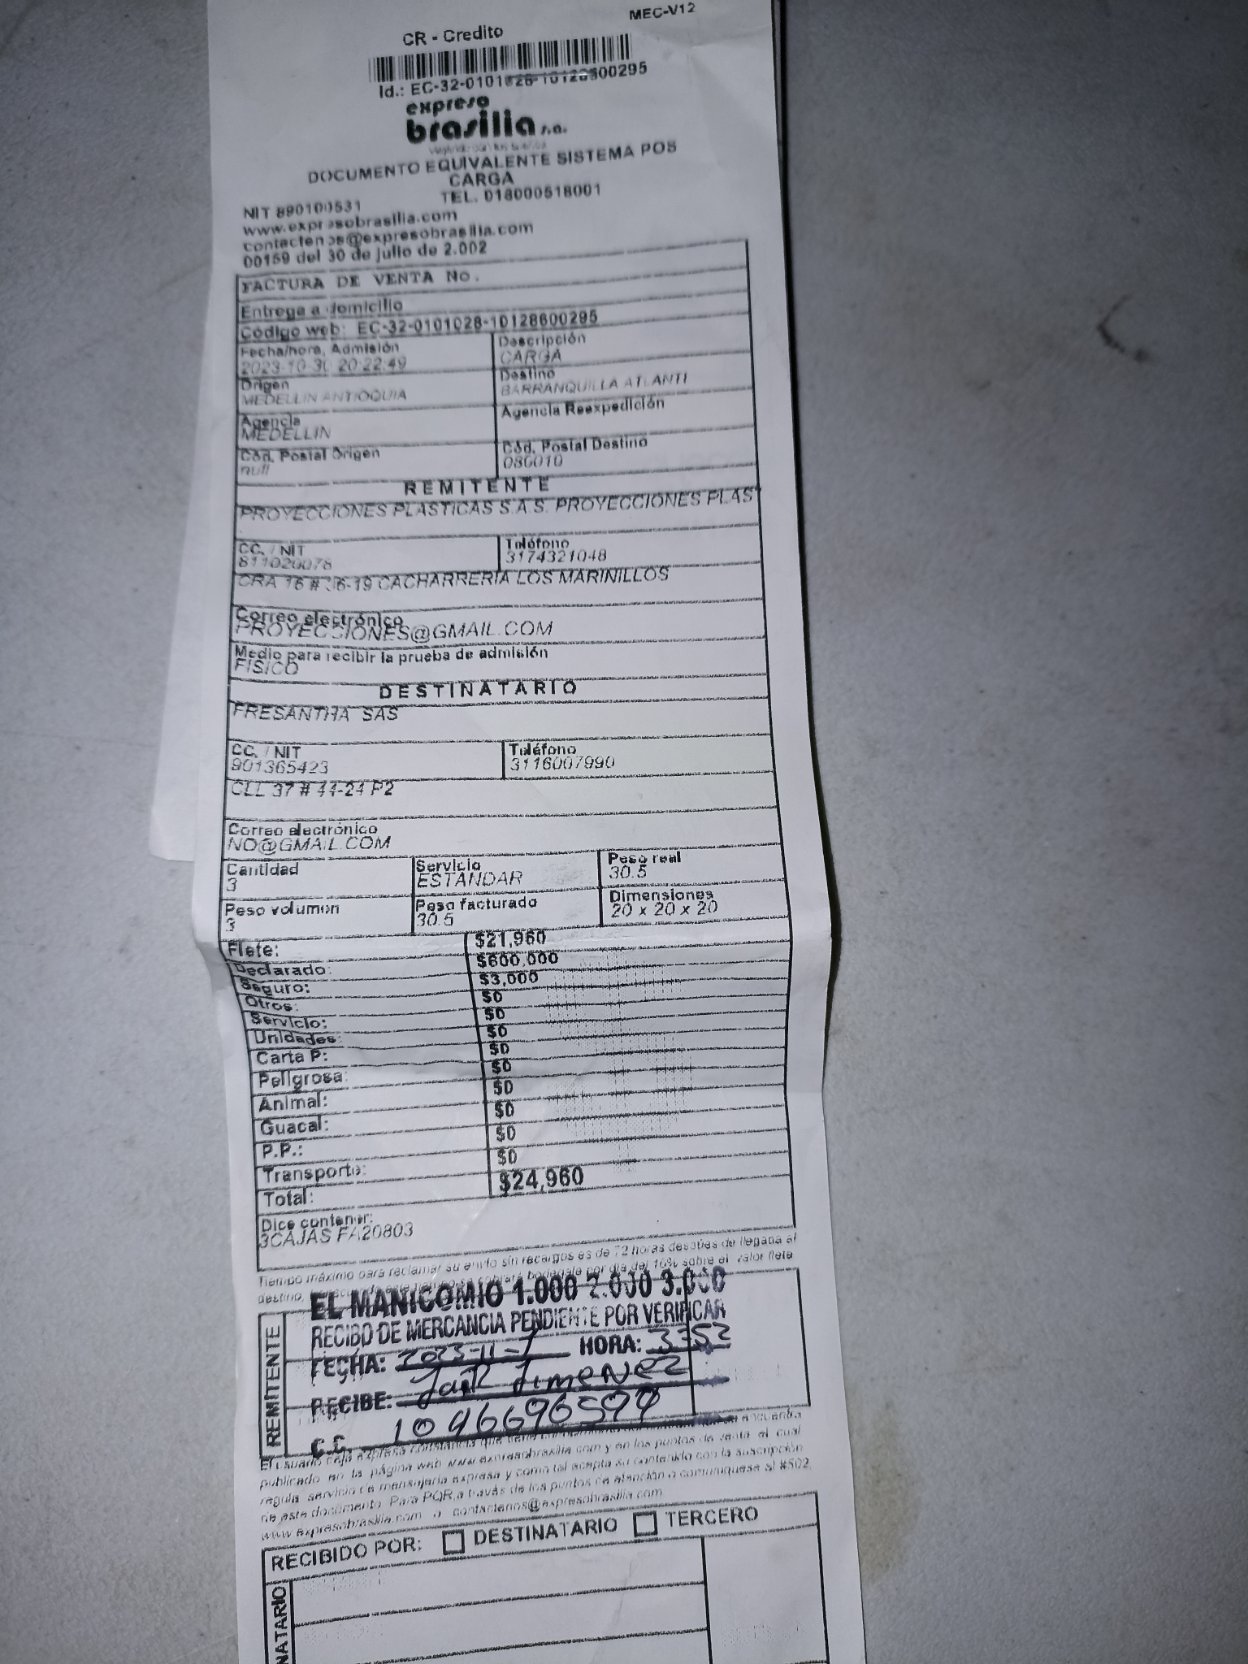 MEC-V12
CR - Credito
Id.: EC-32-0101028-10128600295
expreso
brasilia s.a.
DOCUMENTO EQUIVALENTE SISTEMA POS
CARGA
NIT 890100531 TEL. 018000518001
www.expresobrasilia.com
contactenos@expresobrasilia.com
00159 del 30 de julio de 2.002
FACTURA DE VENTA No.
Entrega a domicilio
Código web: EC-32-0101028-10128600295
Fecha/hora, Admisión Descripción
2023-10-30 20:22:49 CARGA
Origen Destino
MEDELLIN ANTIOQUIA BARRANQUILLA ATLANTI
Agencia Agencia Reexpedición
MEDELLIN
Cód. Postal Origen Cód. Postal Destino
null 080010
REMITENTE
PROYECCIONES PLASTICAS S.A.S. PROYECCIONES PLAS
CC. / NIT Teléfono
811020078 3174321048
CRA 16 # 36-19 CACHARRERIA LOS MARINILLOS
Correo electrónico
PROYECCIONES@GMAIL.COM
Medio para recibir la prueba de admisión
FISICO
DESTINATARIO
FRESANTHA SAS
CC. / NIT Teléfono
901365423 3116007990
CLL 37 # 44-24 P2
Correo electrónico
NO@GMAIL.COM
Cantidad Servicio Peso real
3 ESTANDAR 30.5
Peso volumen Peso facturado Dimensiones
3 30.5 20 x 20 x 20
Flete: $21,960
Declarado: $600,000
Seguro: $3,000
Otros: $0
Servicio: $0
Unidades: $0
Carta P: $0
Peligrosa: $0
Animal: $0
Guacal: $0
P.P.: $0
Transporto: $0
Total: $24,960
Dice contener:
3CAJAS FA20803
Tiempo máximo para reclamar su envío sin recargos es de 72 horas después de llegada al
destino, bodegaje por día del 10% sobre el valor flete
EL MANICOMIO 1.000 2.000 3.000
RECIBO DE MERCANCIA PENDIENTE POR VERIFICAR
FECHA: 2023-11-1 HORA: 3:52
RECIBE: Jair Jimenez
C.C. 1046696599
REMITENTE
El usuario deja expresa constancia que
publicado en la página web www.expresobrasilia.com y en los puntos de venta el cual
regula servicio de mensajería expresa y como tal acepta su contenido con la suscripción
de este documento. Para PQR a través de los puntos de atención o comuníquese al #502,
www.expresobrasilia.com o contactenos@expresobrasilia.com
RECIBIDO POR: DESTINATARIO TERCERO
NATARIO